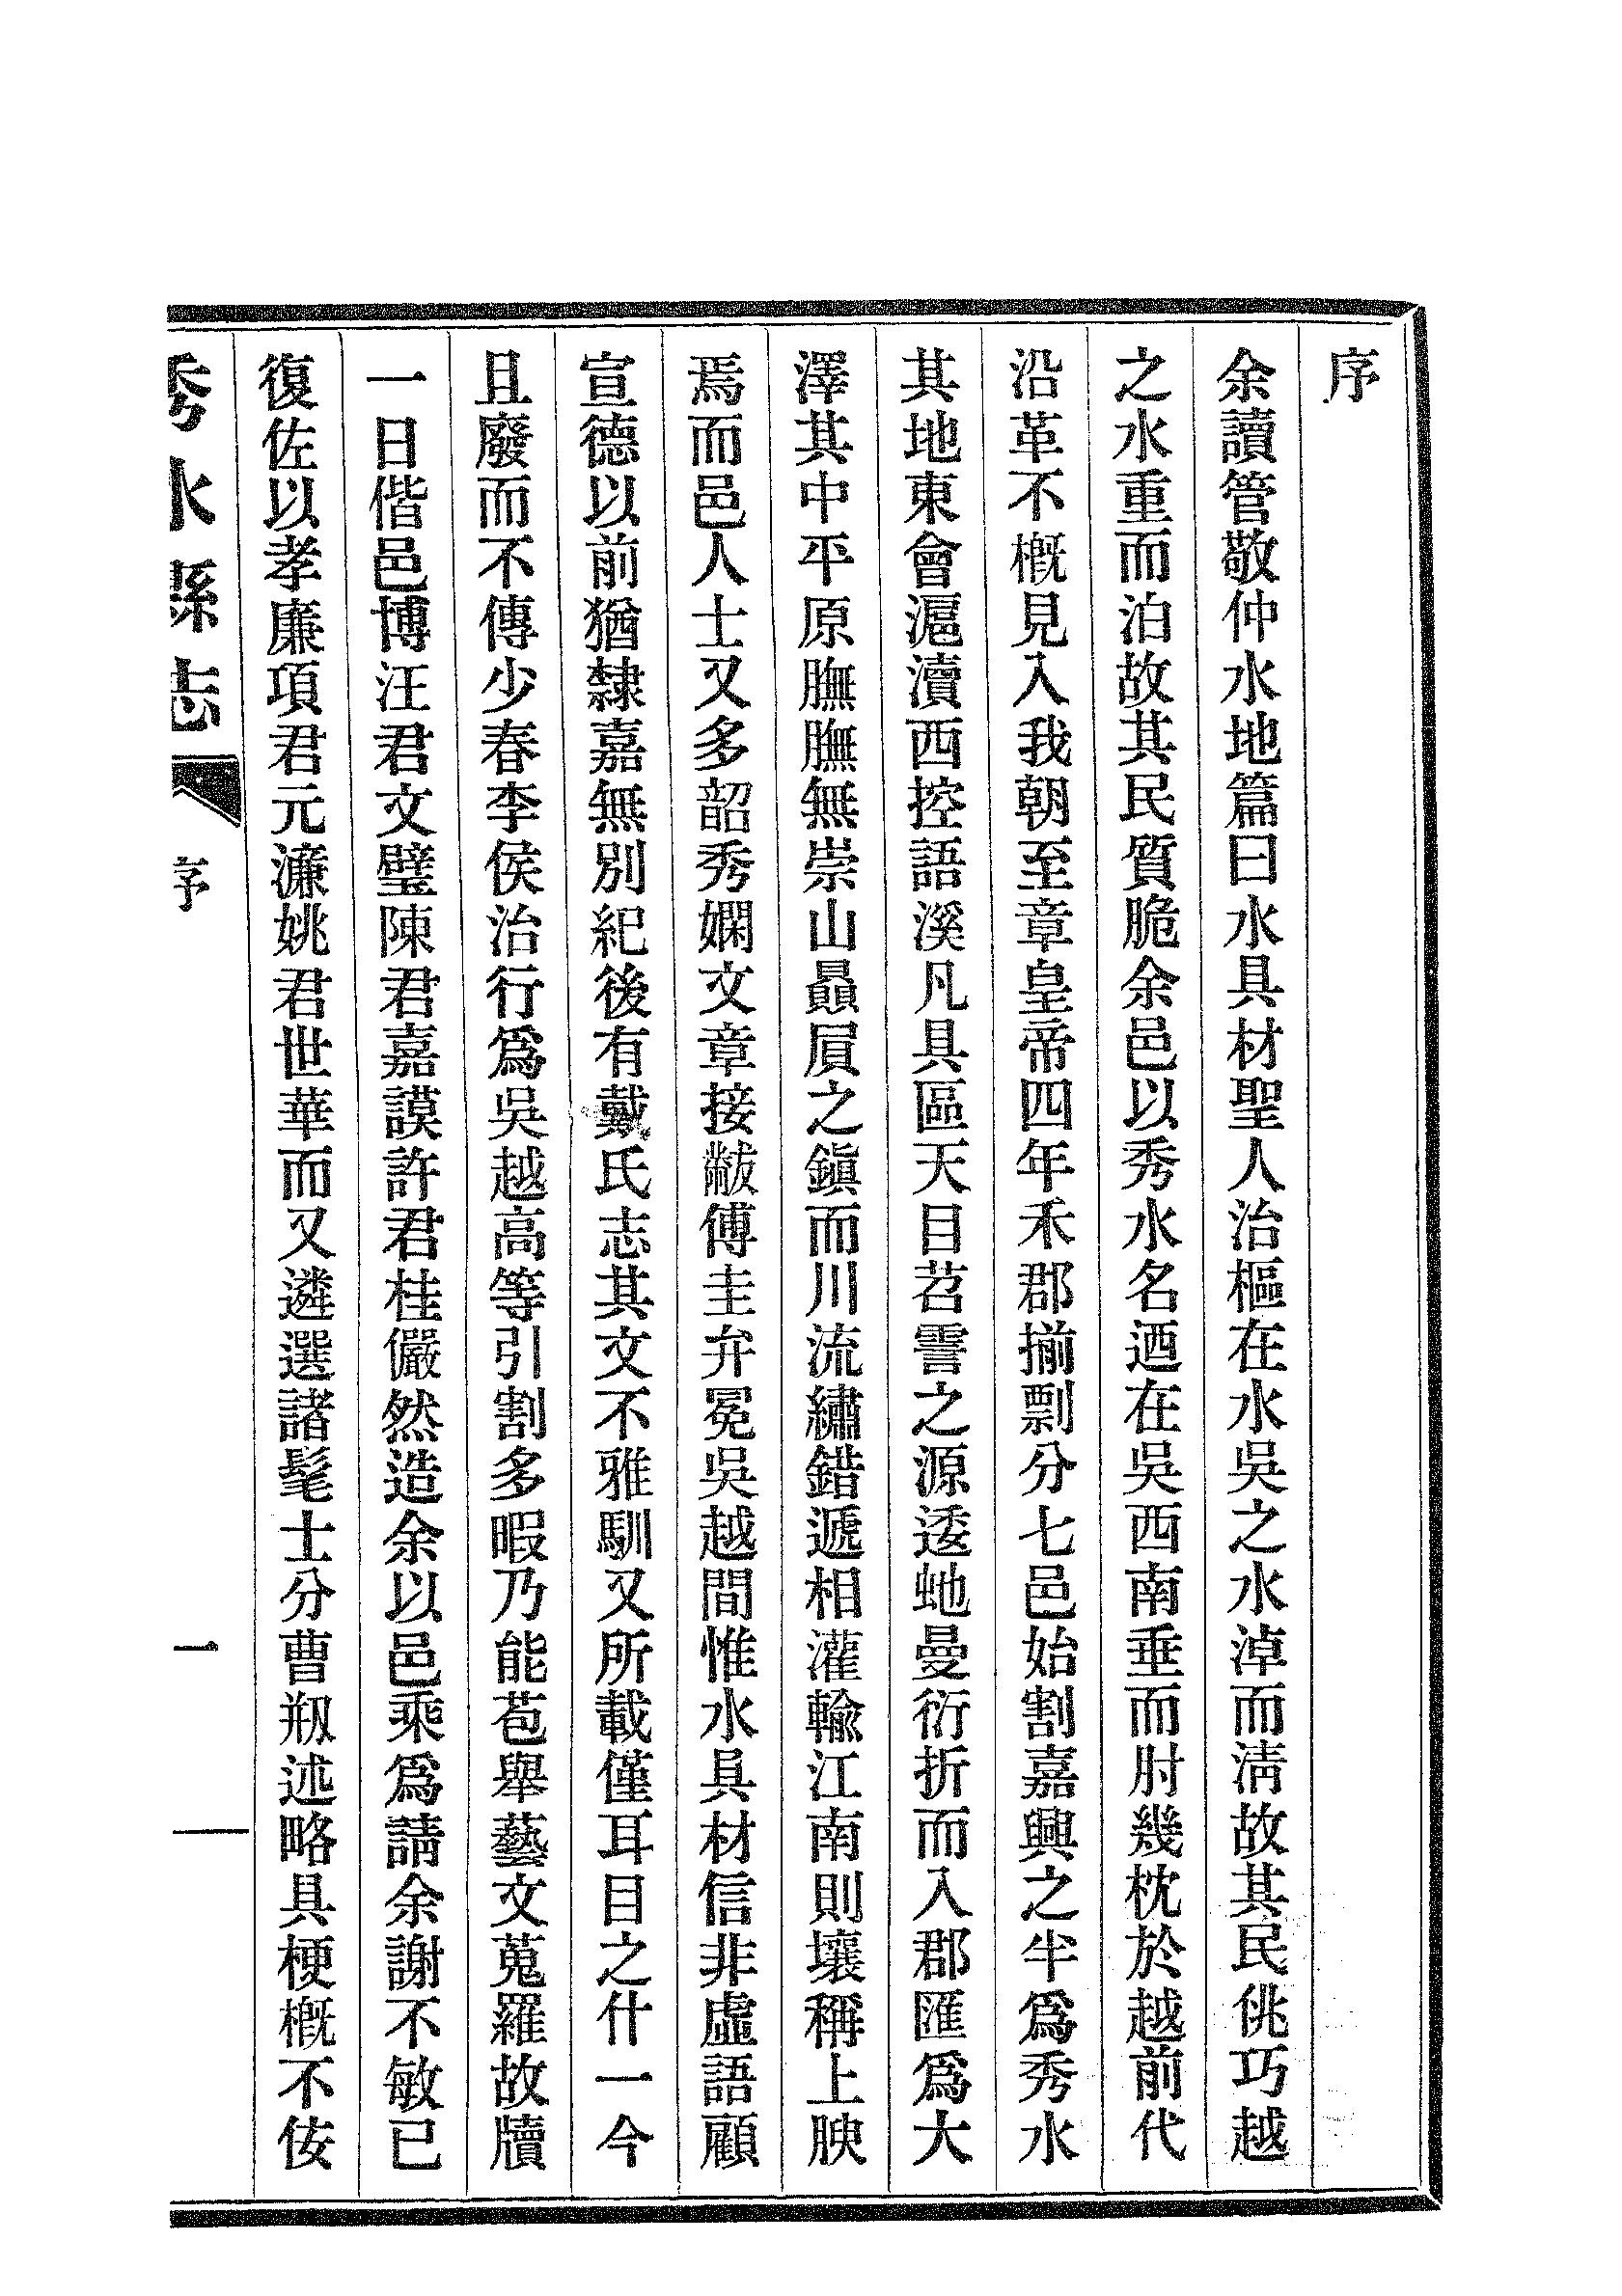 序
余讀管敬仲水地篇曰水具材聖人治樞在水吳之水淖而淸故其民佻巧越
之水重而泊故其民質脆余邑以秀水名迺在吳西南垂而肘幾枕於越前代
沿革不槪見入我朝至章皇帝四年禾郡揃剽分七邑始割嘉興之半爲秀水
其地東會滬瀆西控語溪凡具區天目苕霅之源逶虵曼衍折而入郡匯爲大
澤其中平原膴膴無崇山贔屓之鎭而川流繡錯遞相灌輸江南則壤稱上腴
焉而邑人士又多韶秀嫻文章接黻傅圭弁冕吳越間惟水具材信非虛語顧
宣德以前猶隸嘉無別紀後有戴氏志其文不雅馴又所載僅耳目之什一今
且廢而不傳少春李侯治行爲吳越高等引割多暇乃能苞舉藝文蒐羅故牘
一日偕邑博汪君文璧陳君嘉謨許君桂儼然造余以邑乘爲請余謝不敏已
復佐以孝廉項君元濂姚君世華而又遴選諸髦士分曹剏述略具梗槪不佞
秀水縣志
序
一